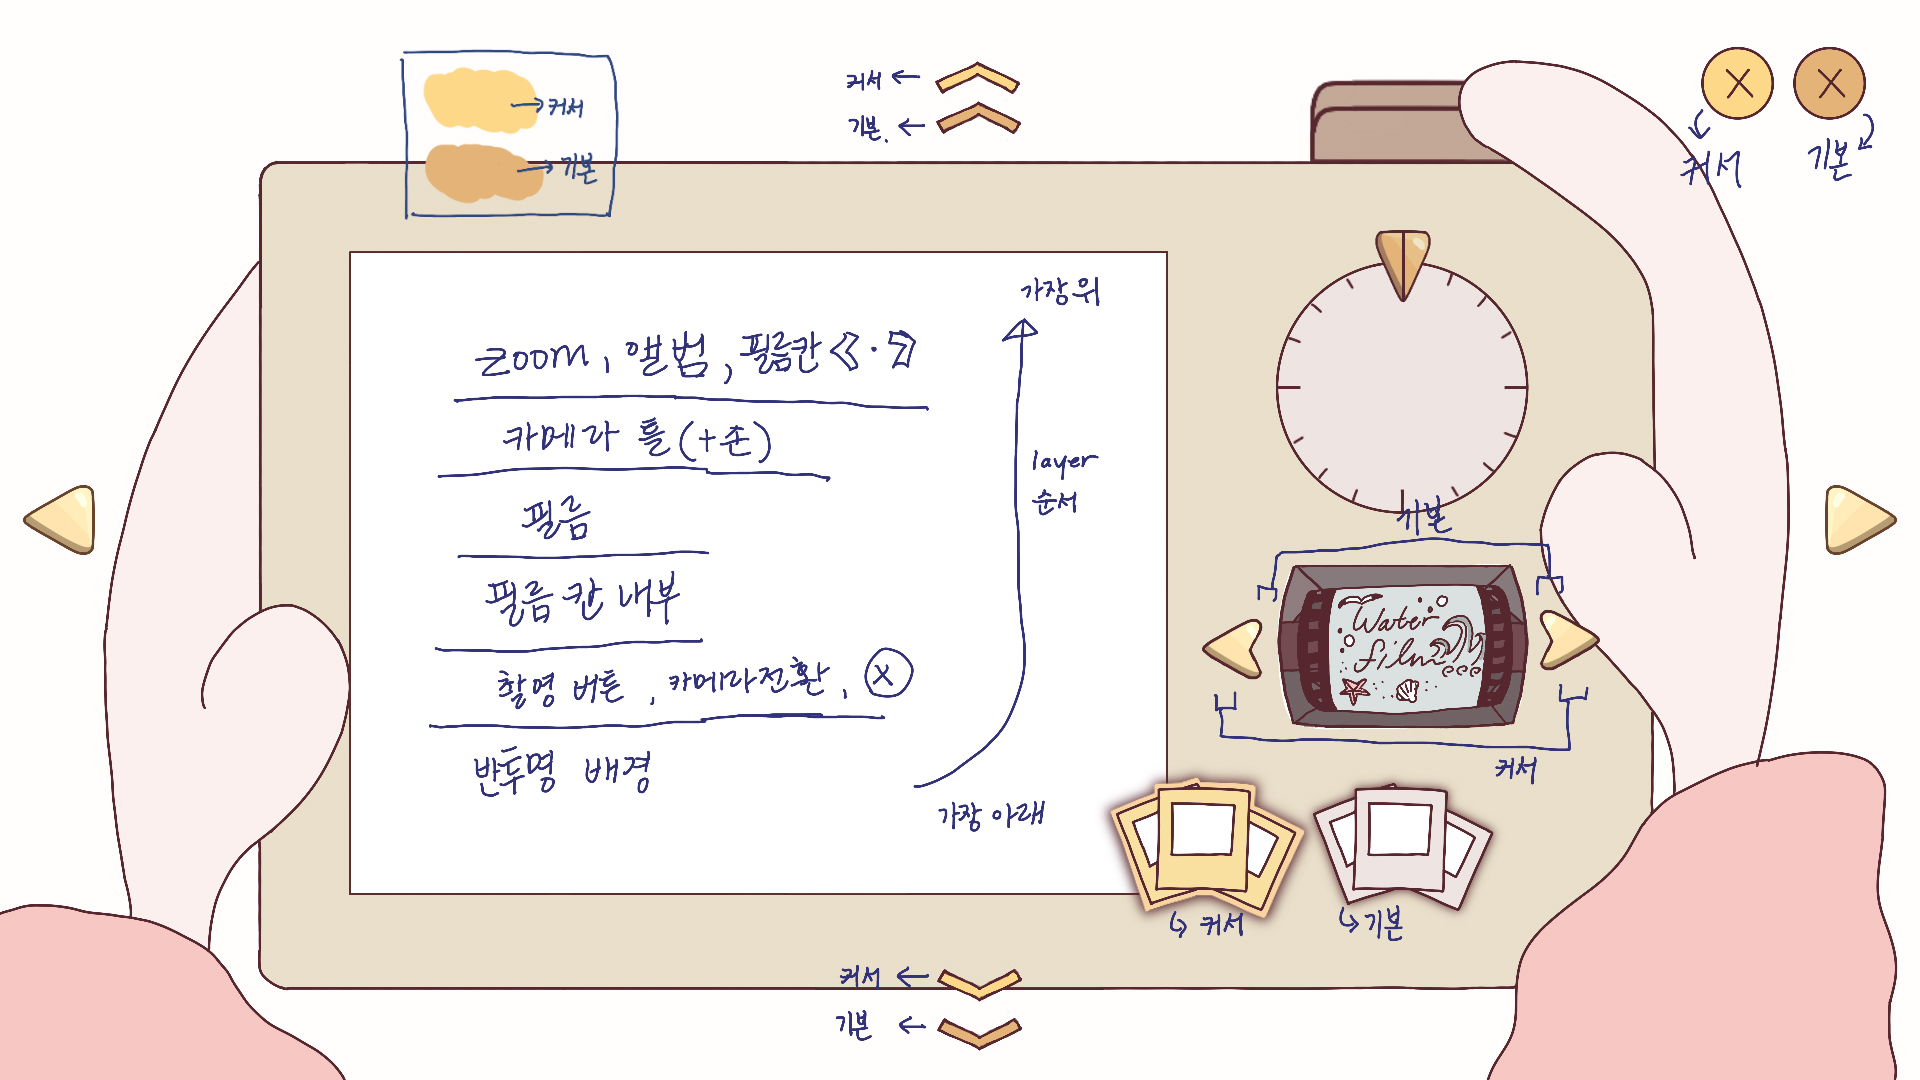 커서
기본
커서
기본.
X
X
커서
기본
가장 위
zoom, 앨범, 필름칸 < · >
카메라 틀 (+손)
layer
순서
필름
필름 칸 내부
촬영 버튼, 카메라전환, X
반투명 배경
가장 아래
기본
Water
film
커서
커서
기본
커서
기본